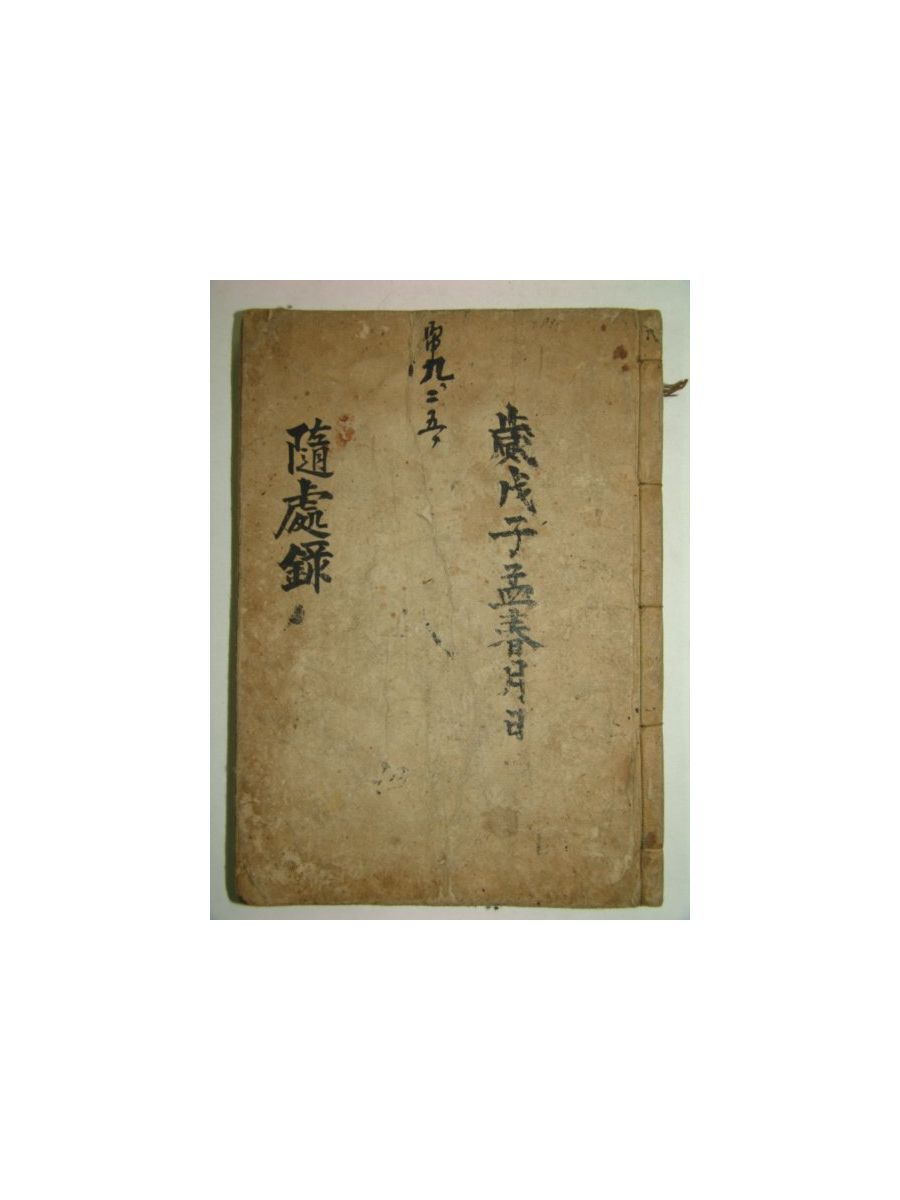 歲戊子孟春月日
九二五
隨處錄